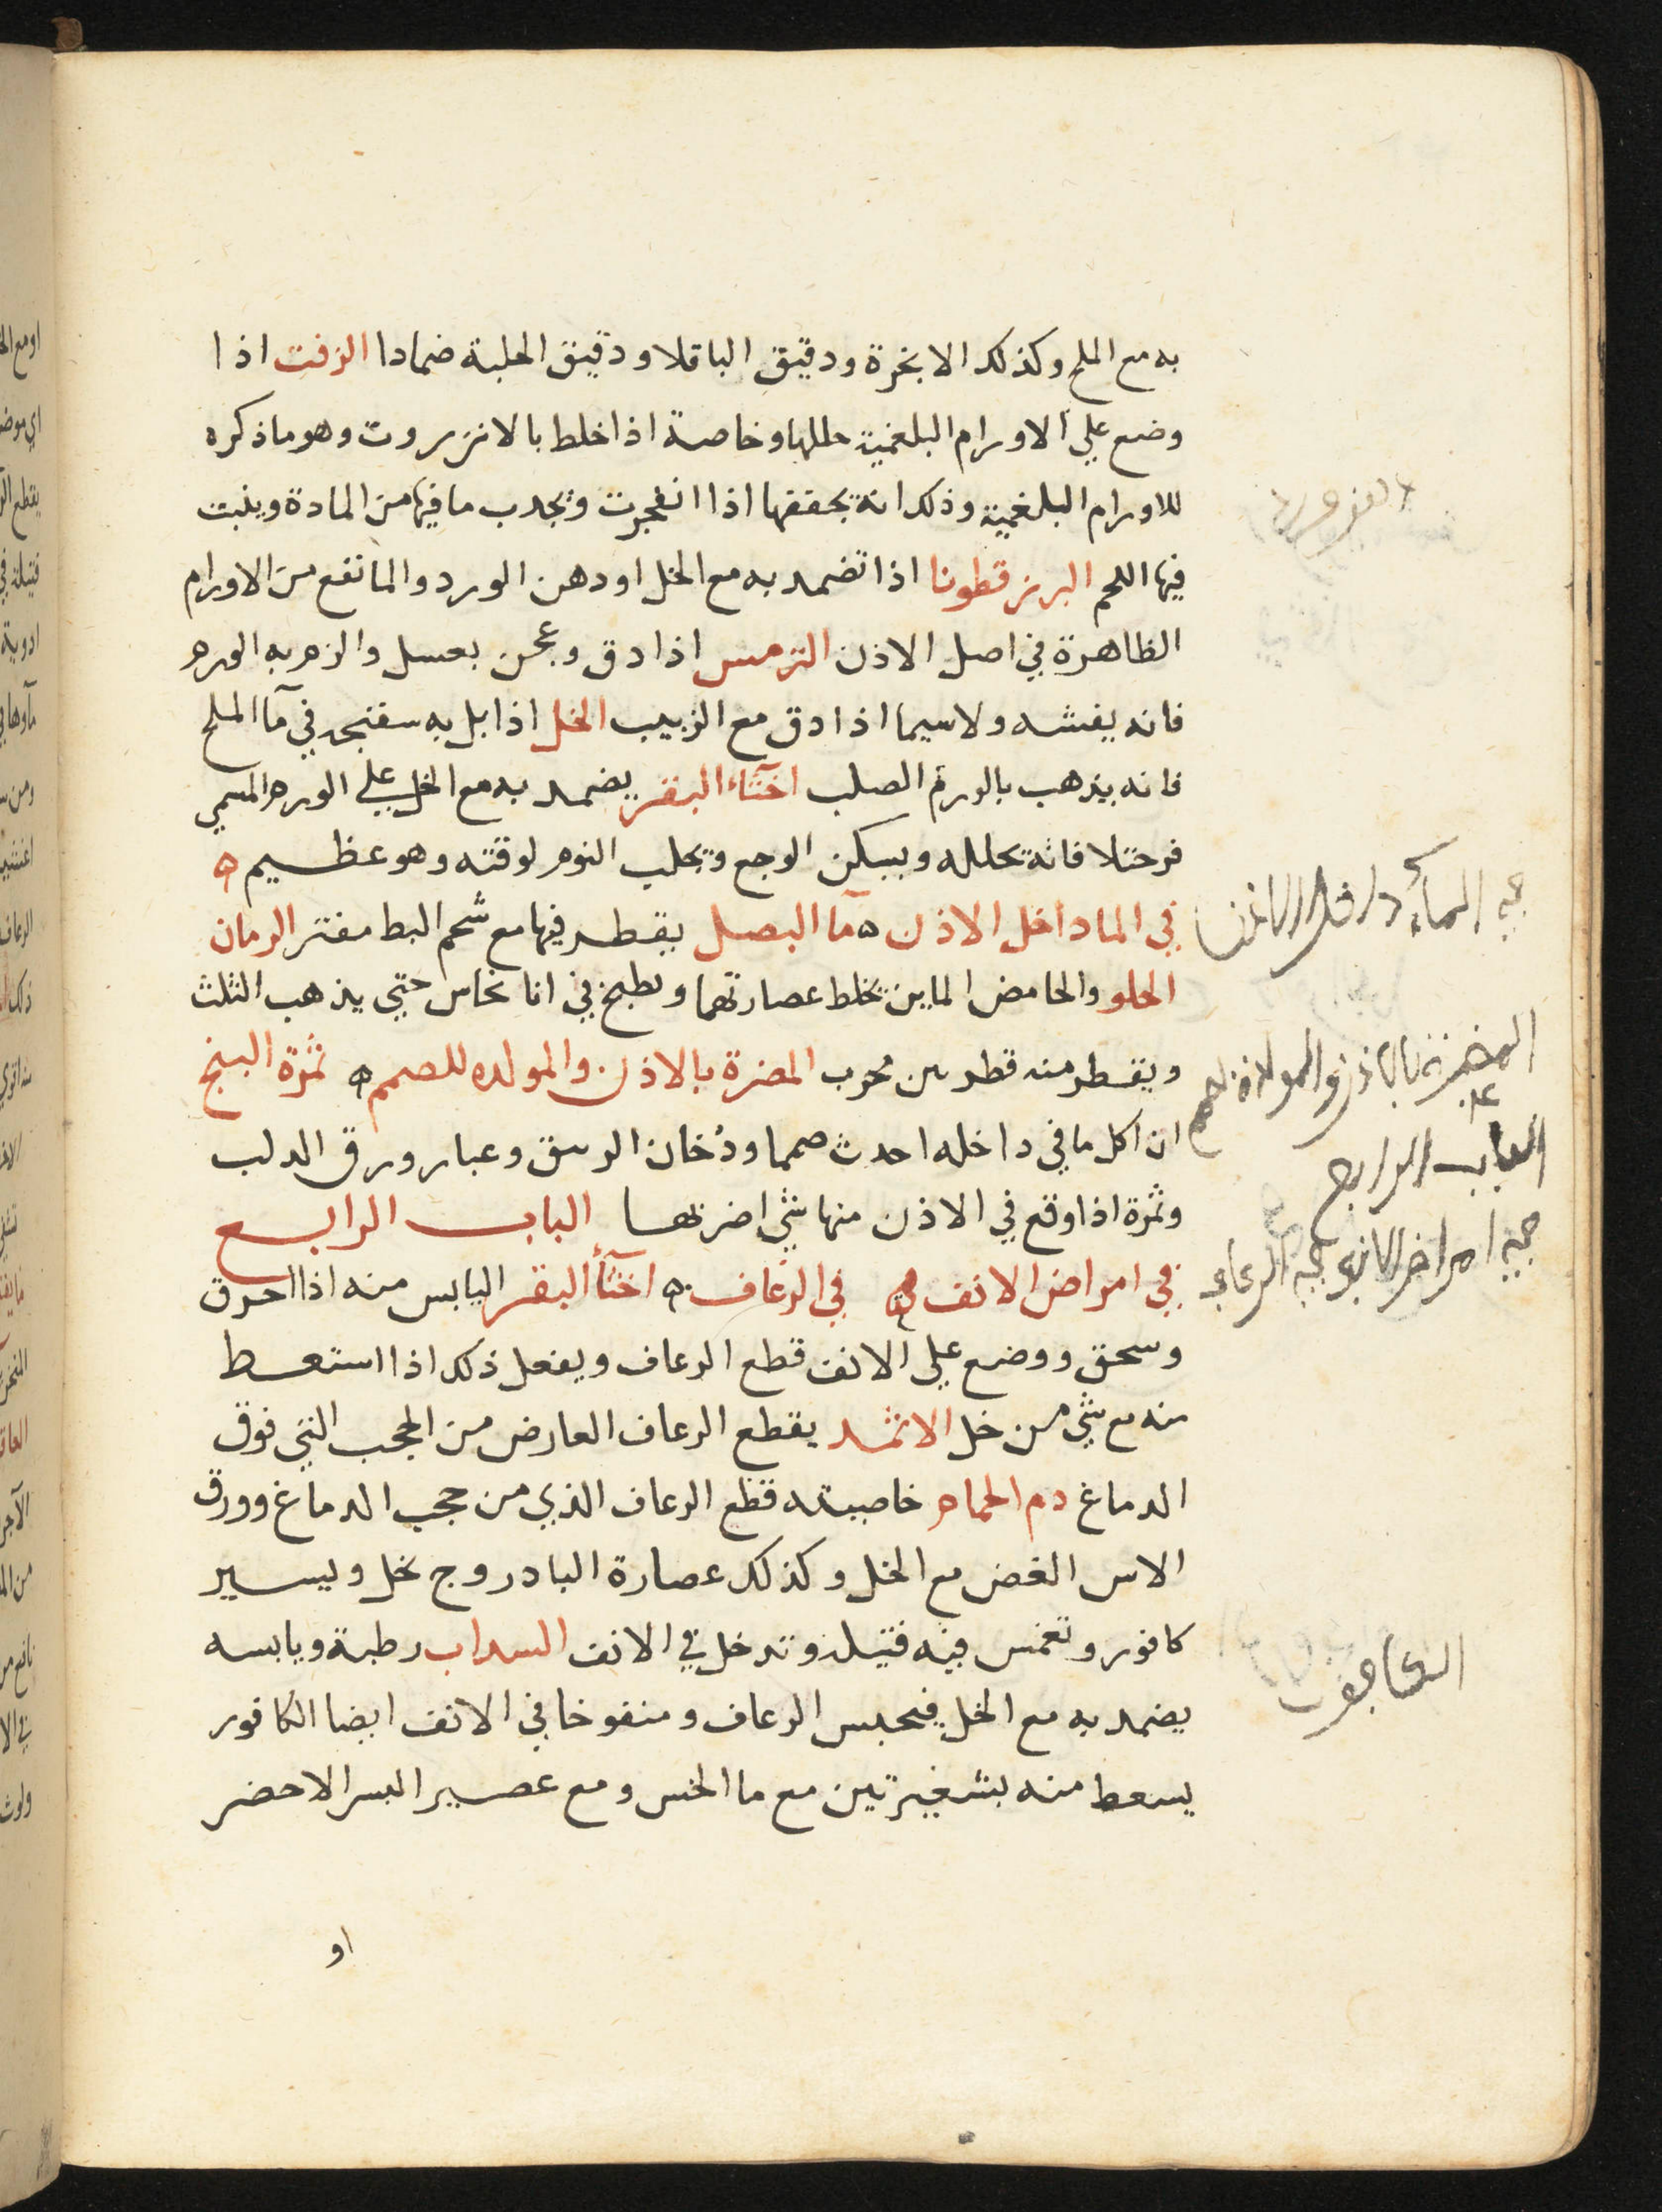 به مع الملح وكذلك الانجرة ودقيق الباقلا ودقيق الحلبة ضمادا الزفت اذا
وضع علي الاورام البلغمية حللها وخاصة اذا خلط بالانزروت وهو ما ذكره
للاورام البلغمية وذلك انه يجففها اذا انفجرت ويجدب ما فيها من المادة وينبت
فيها اللحم البزر قطونا اذا تضمد به مع الخل او دهن الورد والما نفع من الاورام
الظاهرة في اصل الاذن الترمس اذا دق وعجن بعسل والزم به الورم
فانه يفشه ولاسيما اذا دق مع الزبيب الخل اذا بل به سفنجه في مآ الملح
فانه يذهب بالورم الصلب اخثآء البقر يضمد به مع الخل علي الورم المسمي
فرحتلا فانه يحلله ويسكن الوجع ويجلب النوم لوقته وهو عظيم ه
في الما داخل الاذن ه مآ البصل يقطر فيها مع شحم البط مفتر الرمان
الحلو والحامض المايين تخلط عصارتهما ويطبخ في انا نحاس حتي يذهب الثلث
ويقطر منه قطرتين مجرب المضرة بالاذن والمولده للصمم ه ثمرة البنج
ان اكل ما في داخله احدث صمما ودخان الرسق وغبار ورق الدلب
وثمرة اذا وقع في الاذن منها شي اضر بها الباب الرابع
في امراض الانف ه في الرعاف ه اخثأ البقر اليابس منه اذا احرق
وسحق ووضع علي الانف قطع الرعاف ويفعل ذلك اذا استعط
منه مع شي من خل الاثمد يقطع الرعاف العارض من الحجب التي فوق
الدماغ دم الحمام خاصيته قطع الرعاف الذي من حجب الدماغ وورق
الاس الغض مع الخل وكذلك عصارة البادروج بخل ويسير
كافور وتغمس فيه فتيله وتدخل في الانف السداب رطبة ويابسه
يضمد به مع الخل فيحبس الرعاف ومنفوخا في الانف ايضا الكافور
يسعط منه بشعيرتين مع ما الخس ومع عصير البسر الاخضر
او
في المأ داخل الاذن
المضرة بالاذن والمولدة للصمم
الباب الرابع
في امراض الانف في الرعاف
الكافور